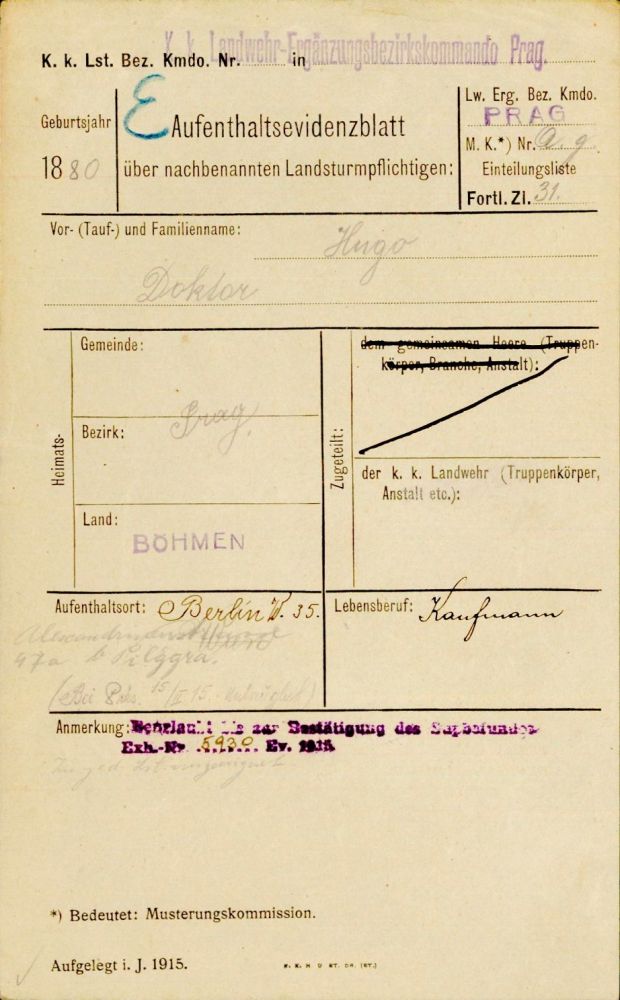 K. k. Landwehr-Ergänzungsbezirkskommando Prag.
K. k. Lst. Bez. Kmdo. Nr. in
Geburtsjahr
1880
E
Aufenthaltsevidenzblatt
über nachbenannten Landsturmpflichtigen:
Lw. Erg. Bez. Kmdo.
PRAG
M. K.*) Nr. a. g
Einteilungsliste
Fortl. Zl. 31.
Vor- (Tauf-) und Familienname: Hugo
Doktor
Heimats-
Gemeinde:
Prag
Bezirk:
Land:
BÖHMEN
Zugeteilt:
dem gemeinsamen Heere (Truppen-
körper, Branche, Anstalt):
der k. k. Landwehr (Truppenkörper,
Anstalt etc.):
Aufenthaltsort: Berlin W. 35.
47a b Pilggra.
(Bei 15/II 15
Lebensberuf: Kaufmann
Anmerkung: bis zur Bestätigung des
Exh.-Nr. 5930 Ev. 1915.
*) Bedeutet: Musterungskommission.
Aufgelegt i. J. 1915.